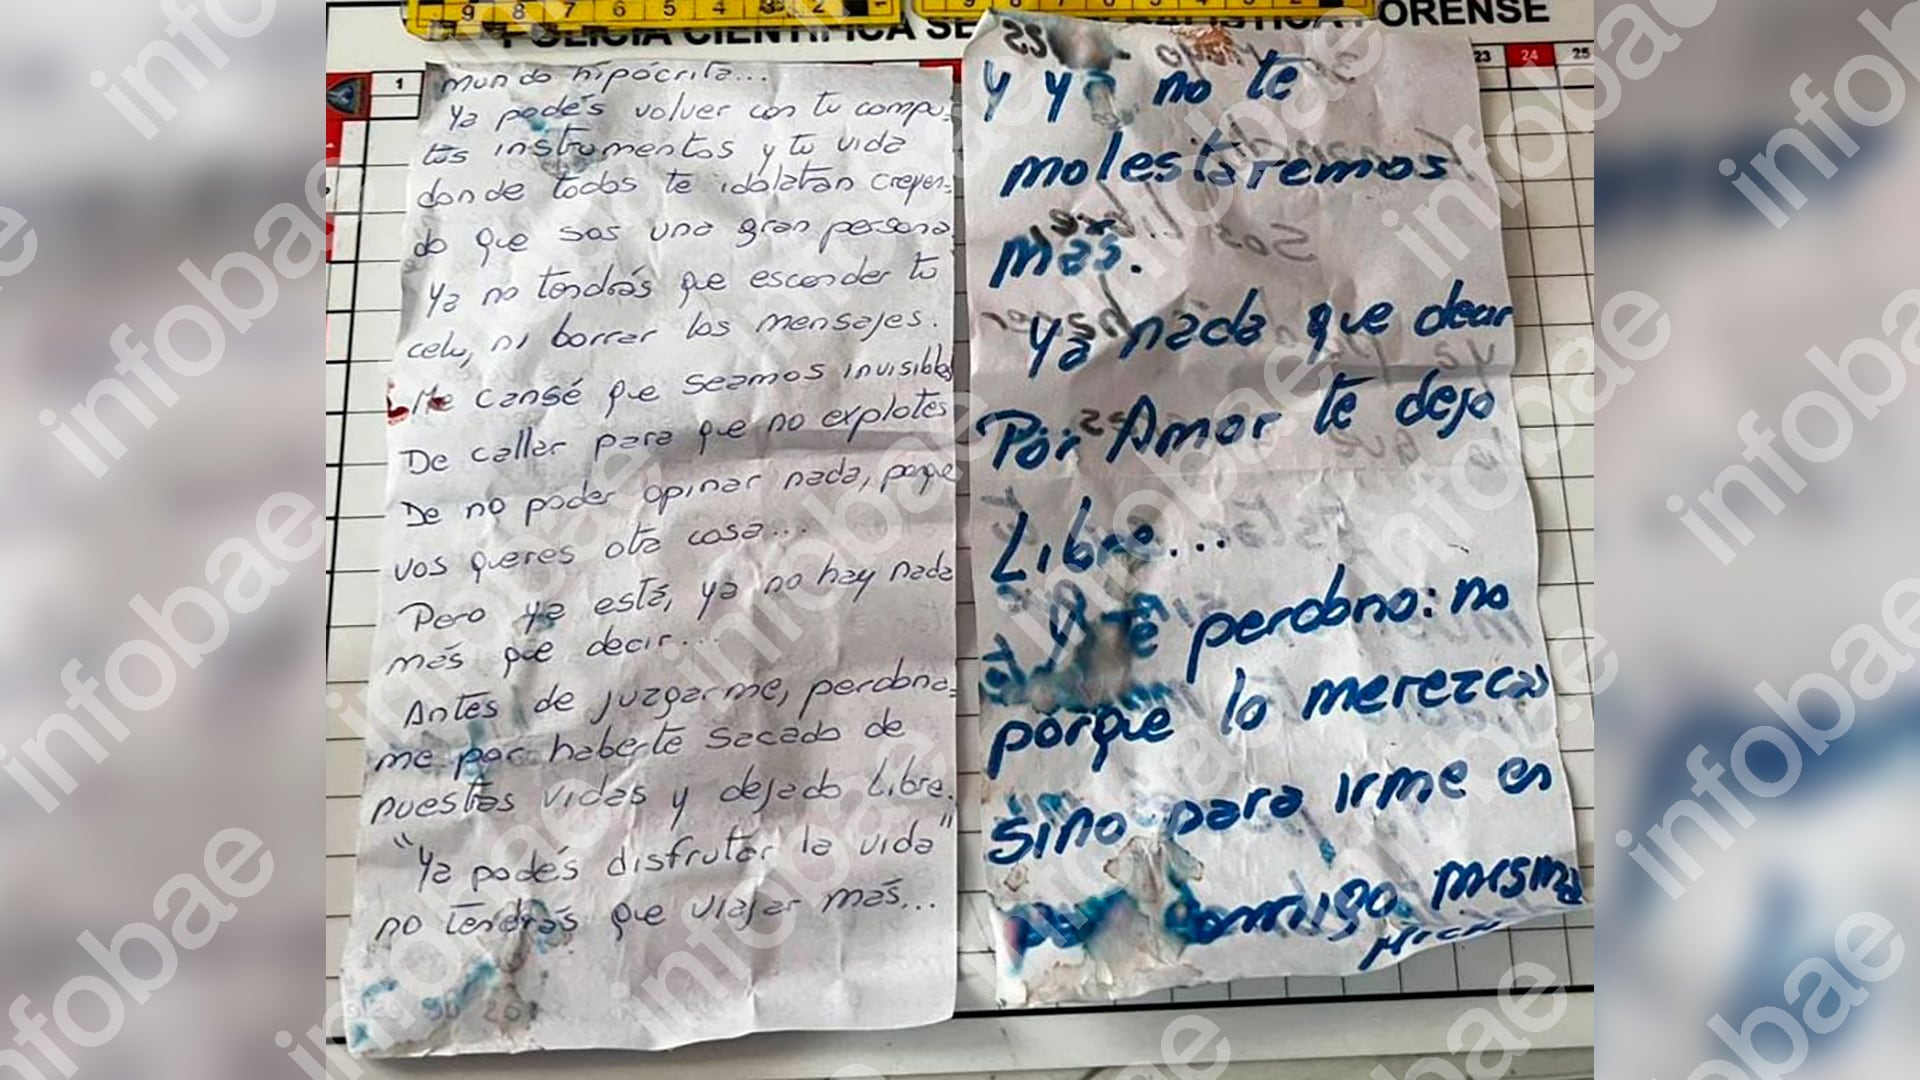 9 8 7 6 5 4 3 2 1
POLICIA CIENTIFICA FORENSE
1 23 24 25
mundo hipócrita...
Ya podés volver con tu compu,
tus instrumentos y tu vida
donde todos te idolatan creyen-
do que sos una gran persona.
Ya no tendrás que esconder tu
celu, ni borrar los mensajes.
Me cansé que seamos invisibles
De callar para que no explotes
De no poder opinar nada, porque
vos queres ota cosa...
Pero ya está, ya no hay nada
más que decir...
Antes de juzgarme, perdona-
me por haberte sacado de
nuestas vidas y dejado libre.
"Ya podés disfrutar la vida"
no tendrás que viajar más...
y ya no te
molestaremos
más.
Ya nada que decir
Por Amor te dejo
Libre...
Te perdono: no
porque lo merezcas
sino para irme en
conmigo misma
infobae